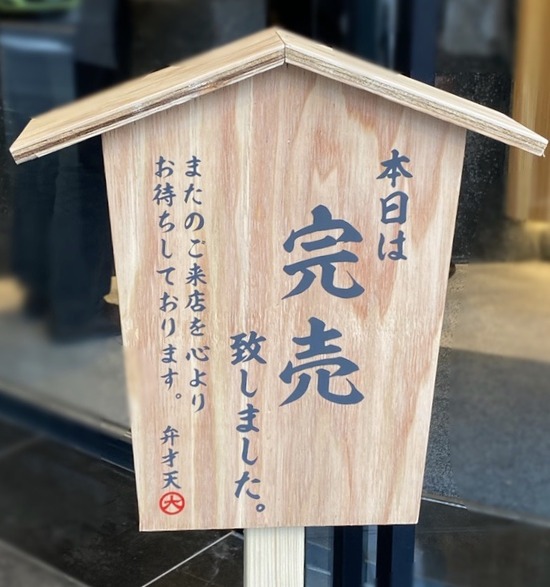 本日は
完売
致しました。
またのご来店を心より
お待ちしております。
弁才天
大